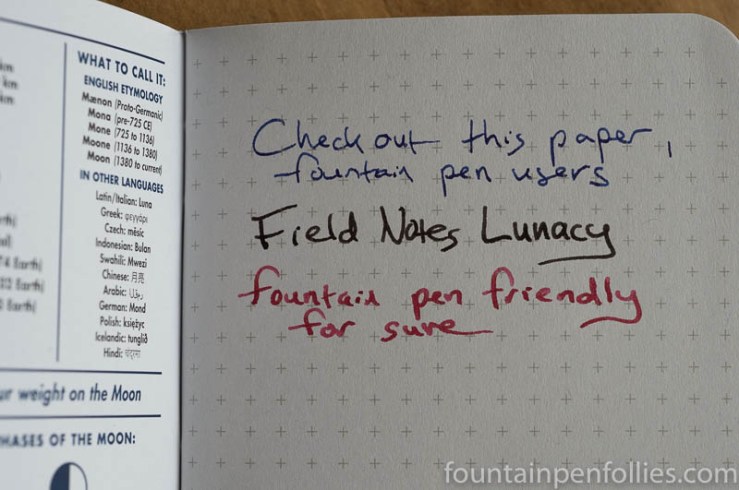 km
km
km
4 Earth)
Earth)
Earth)
WHAT TO CALL IT:
ENGLISH ETYMOLOGY
Mænon (Proto-Germanic)
Mona (pre-725 CE)
Mone (725 to 1136)
Moone (1136 to 1380)
Moon (1380 to current)
IN OTHER LANGUAGES
Latin/Italian: Luna
Greek: φεγγάρι
Czech: měsíc
Indonesian: Bulan
Swahili: Mwezi
Chinese: 月亮
Arabic:
German: Mond
Polish: księżyc
Icelandic: tunglið
Hindi:
ur weight on the Moon
HASES OF THE MOON:
Check out this paper,
fountain pen users
Field Notes Lunacy
fountain pen friendly
for sure
fountainpenfollies.com